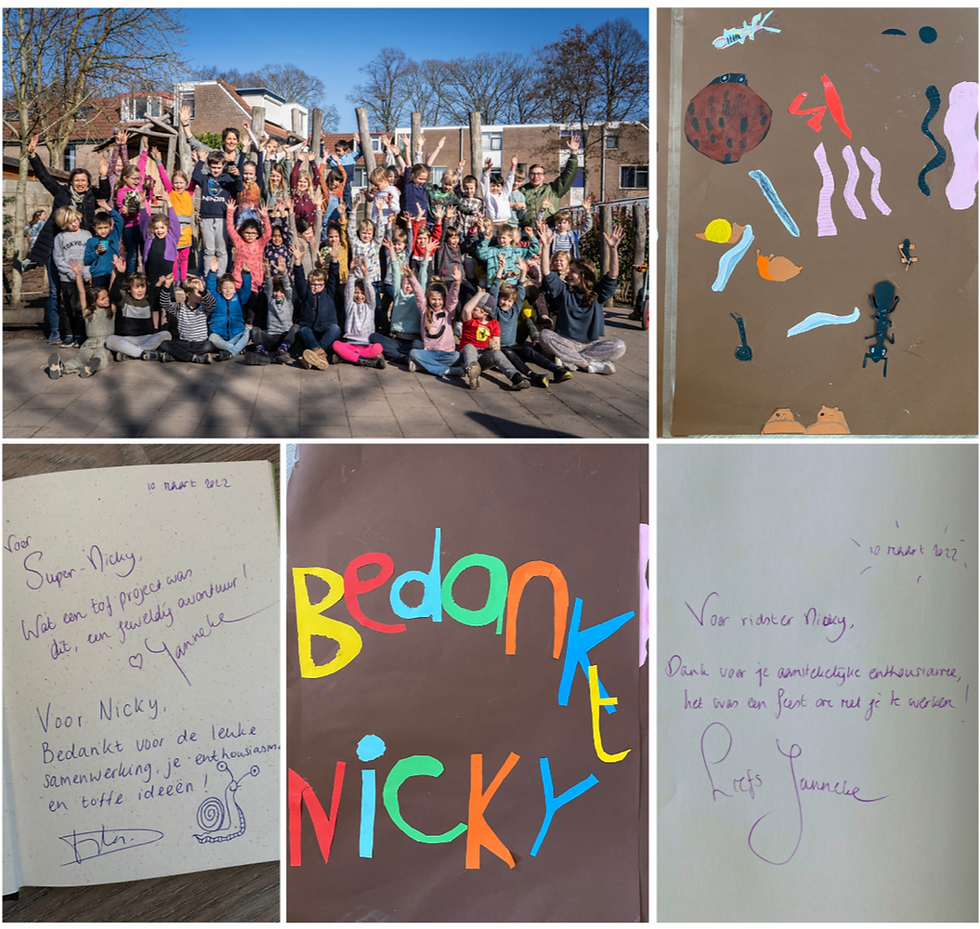 NINJA
TOKYO
10 maart 2022
Voor
Super-Nicky,
Wat een tof project was
dit, een geweldig avontuur!
♡ Janneke
Voor Nicky,
Bedankt voor de leuke
samenwerking, je enthousiasme
en toffe ideeën!
Bedankt
Nicky
10 maart 2022
Voor ridster Nicky,
Dank voor je aanstekelijke enthousiasme,
het was een feest om met je te werken!
Liefs Janneke